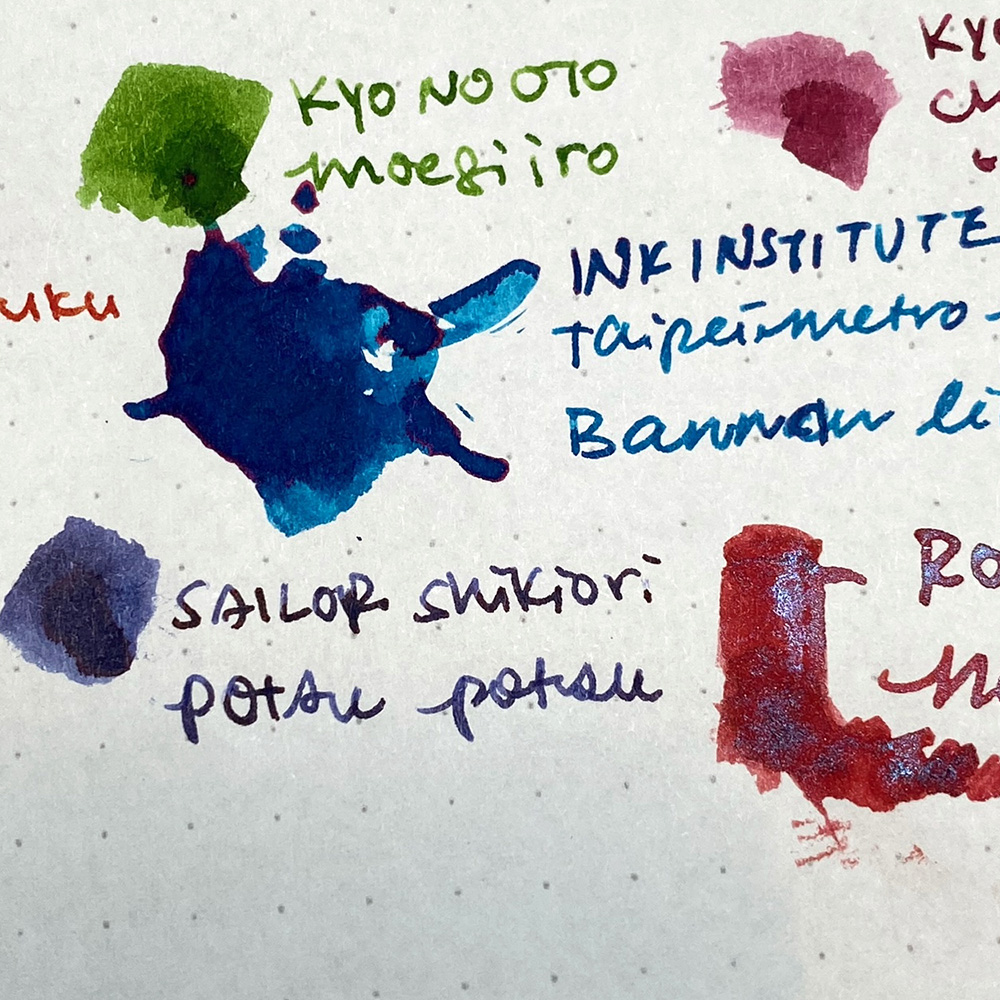 KYO NO OTO
moegiiro
KYO
uku
INK INSTITUTE
taipei metro -
Bannan li
SAILOR shikiori
potau potau
RO